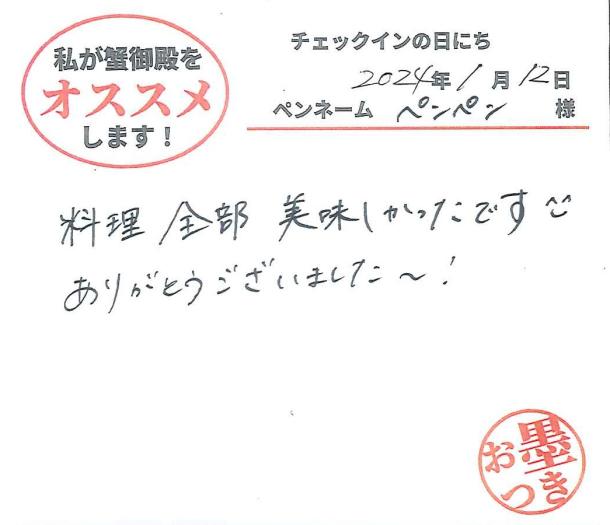 私が蟹御殿を
オススメ
します！
チェックインの日にち
2024年1月12日
ペンネーム ペンペン 様
料理 全部 美味しかったです
ありがとうございました〜！
お墨
つき